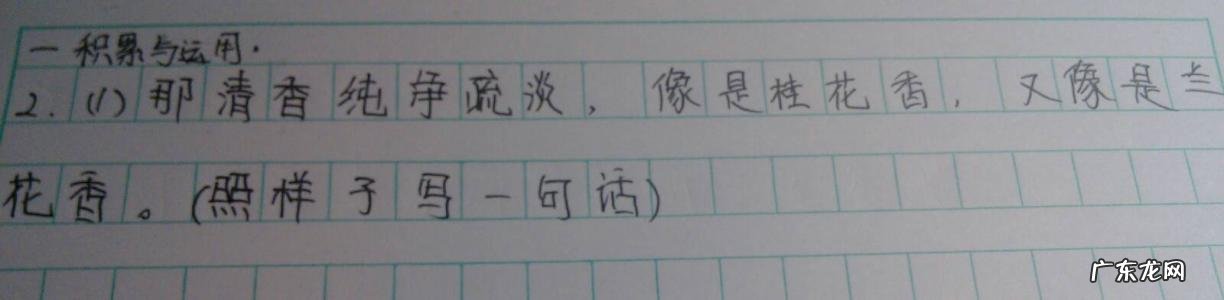 一 积累与运用.
2. (1) 那清香纯净疏淡，像是桂花香，又像是兰
花香。(照样子写一句话)
广东龙网